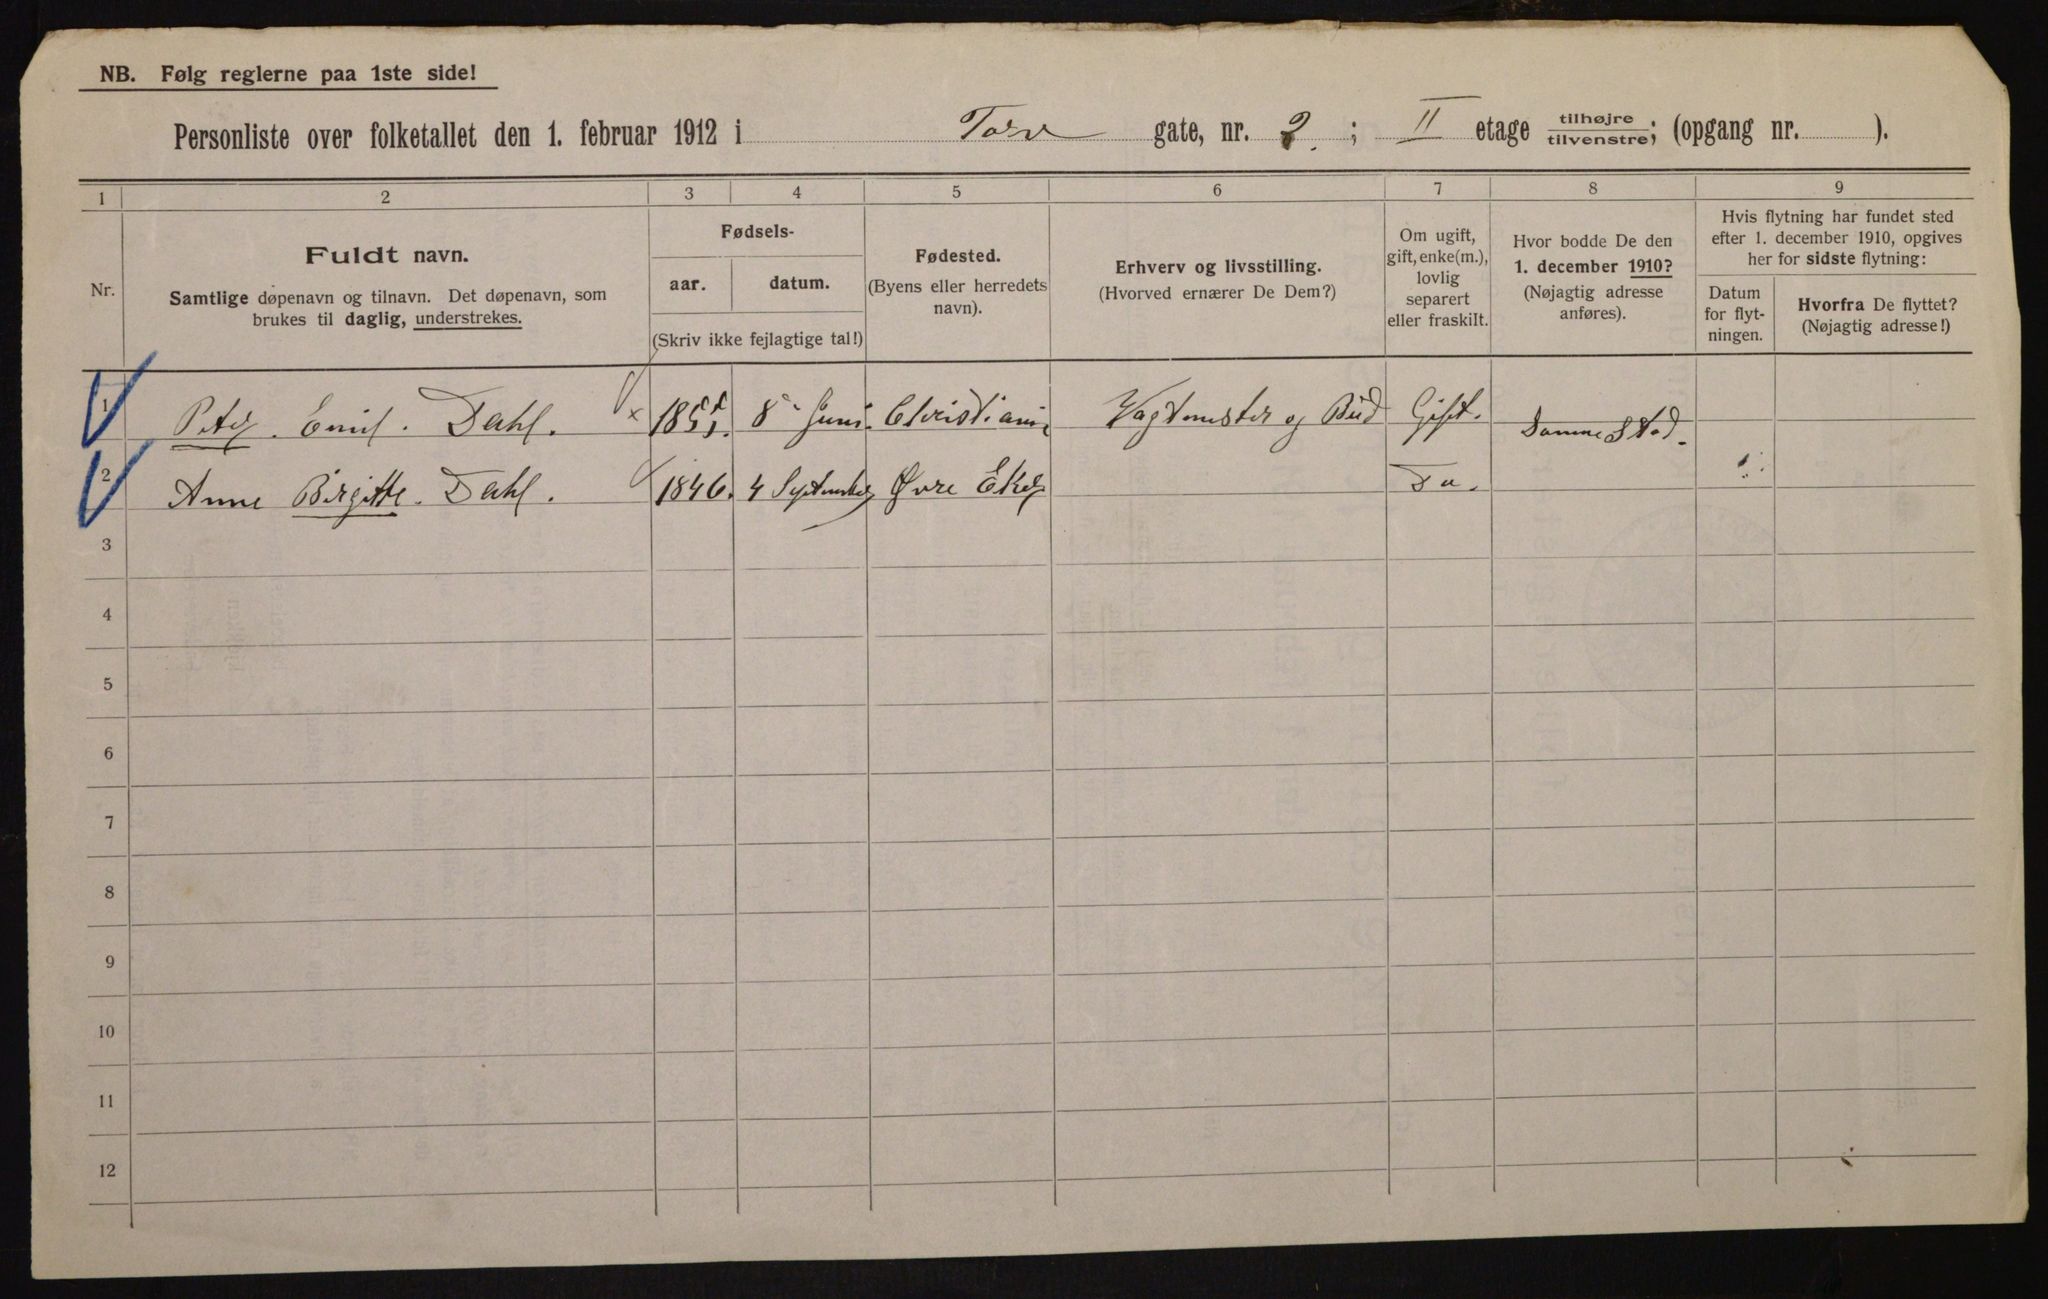 NB. Følg reglerne paa 1ste side!
Personliste over folketallet den 1. februar 1912 i Torv gate, nr. 2. ; II etage tilhøjre/tilvenstre; (opgang nr. ).
1 2 3 4 5 6 7 8 9
Nr.
Fuldt navn.
Samtlige døpenavn og tilnavn. Det døpenavn, som
brukes til daglig, understrekes.
Fødsels-
aar. datum.
(Skriv ikke fejlagtige tal!)
Fødested.
(Byens eller herredets
navn).
Erhverv og livsstilling.
(Hvorved ernærer De Dem?)
Om ugift,
gift, enke(m.),
lovlig
separert
eller fraskilt.
Hvor bodde De den
1. december 1910?
(Nøjagtig adresse
anføres).
Hvis flytning har fundet sted
efter 1. december 1910, opgives
her for sidste flytning:
Datum
for flyt-
ningen.
Hvorfra De flyttet?
(Nøjagtig adresse!)
1 Peter. Emil. Dahl. × 1855. 8 Juni Christiania Vagtmester og Bud Gift. Samme Sted.
2 Anne Birgitte. Dahl. 1846. 4 September Øvre Eker Do.
3
4
5
6
7
8
9
10
11
12